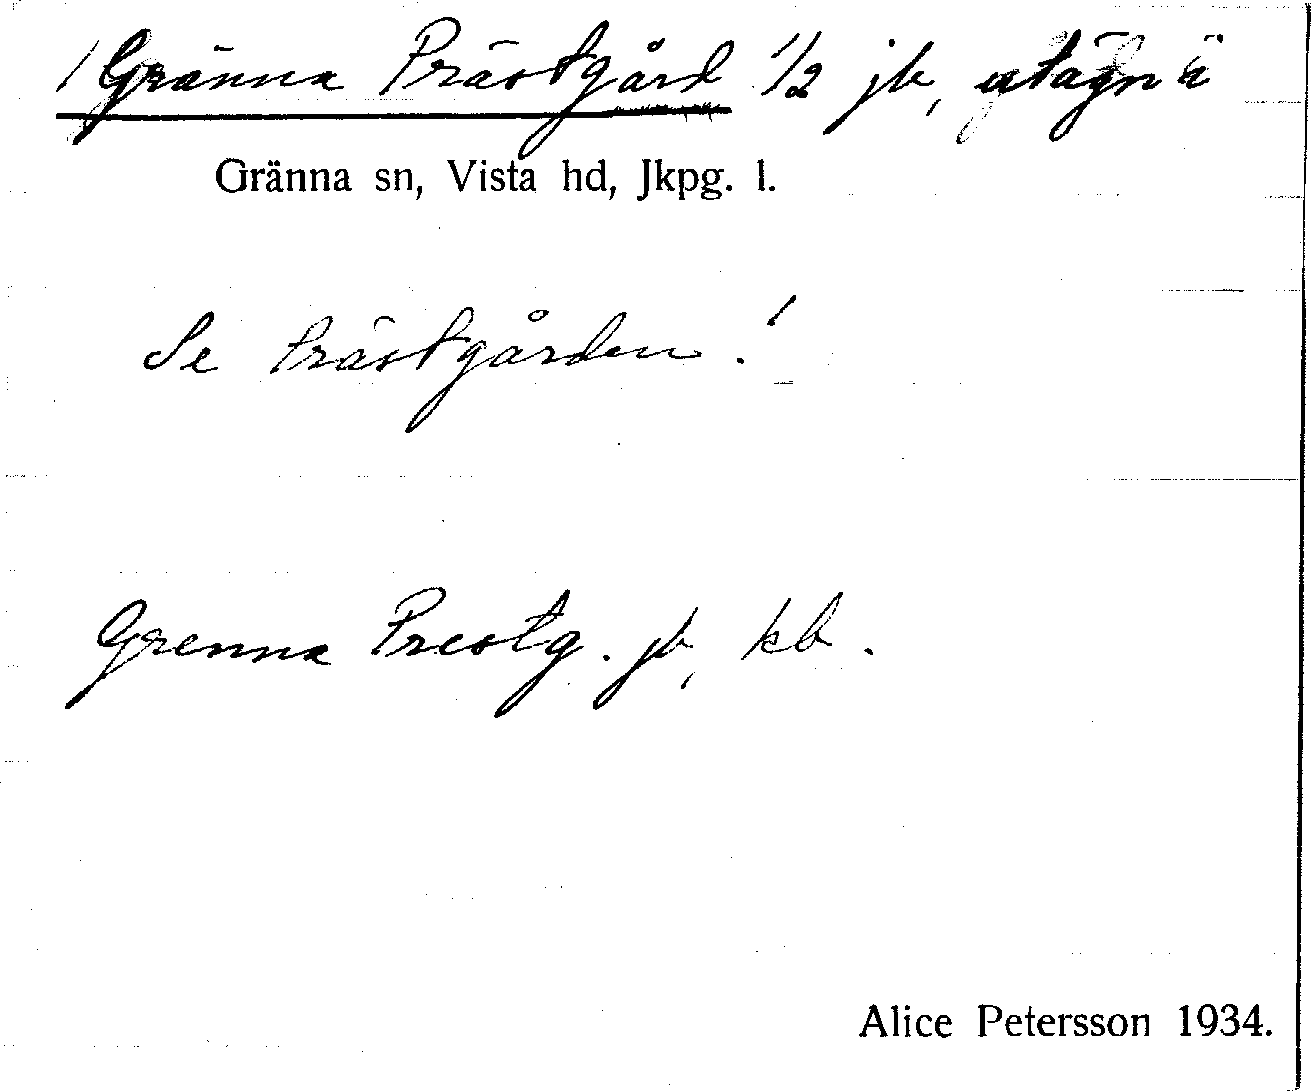 / Gränna Prästgård 1/2 jb, utägn ä
Gränna sn, Vista hd, Jkpg. l.
Se Prästgården!
Grenna Prestg. jb, kb.
Alice Petersson 1934.